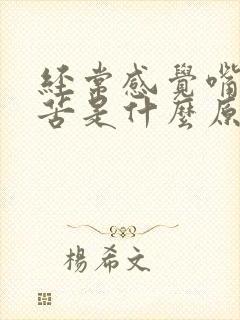 經常感覺嘴
苦是什麼原
楊希文